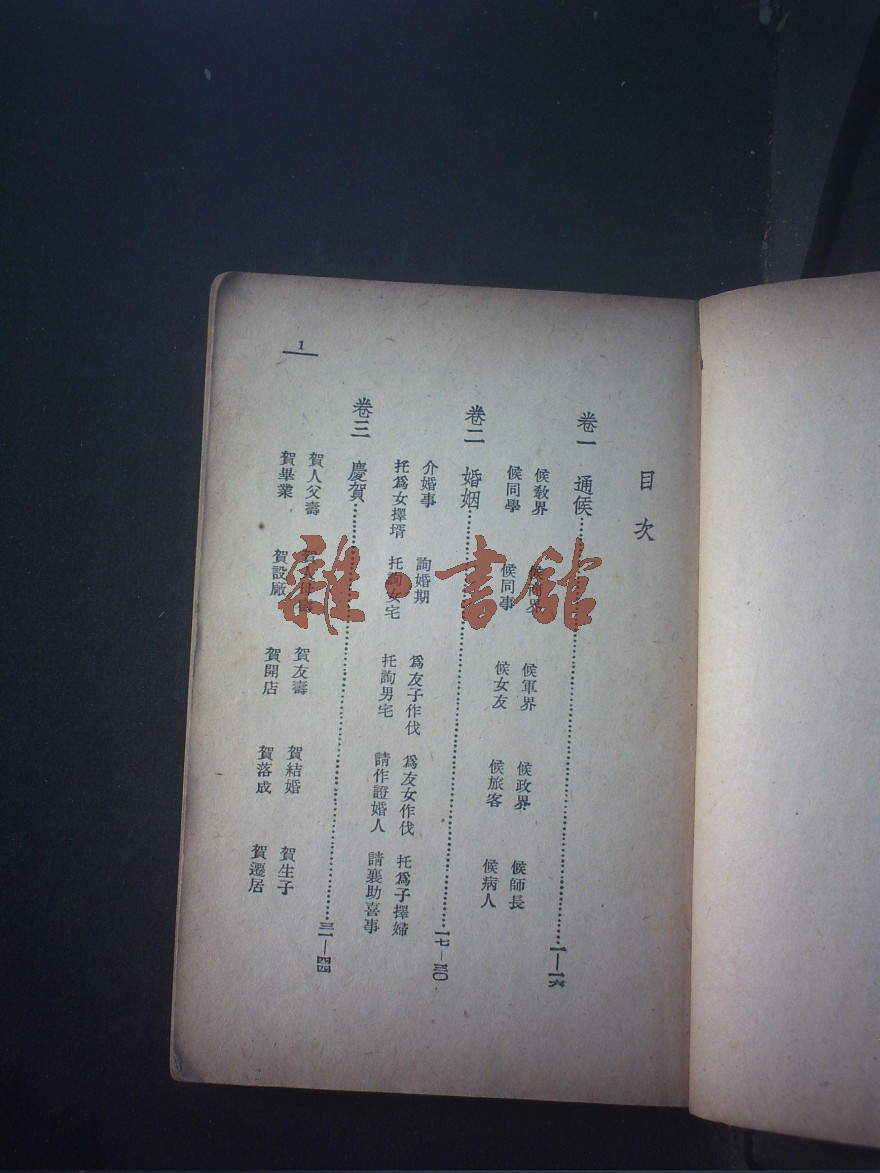 目次
卷一 通候……一—一六
候教界 候商界 候軍界 候政界 候師長
候同學 候同事 候女友 候旅客 候病人
卷二 婚姻……一七—三〇
介婚事 詢婚期 爲友子作伐 爲友女作伐 托爲子擇婦
托爲女擇壻 托詢女宅 托詢男宅 請作證婚人 請襄助喜事
卷三 慶賀……三一—四四
賀人父壽 賀人母壽 賀友壽 賀結婚 賀生子
賀畢業 賀設廠 賀開店 賀落成 賀遷居
1
雜·書館